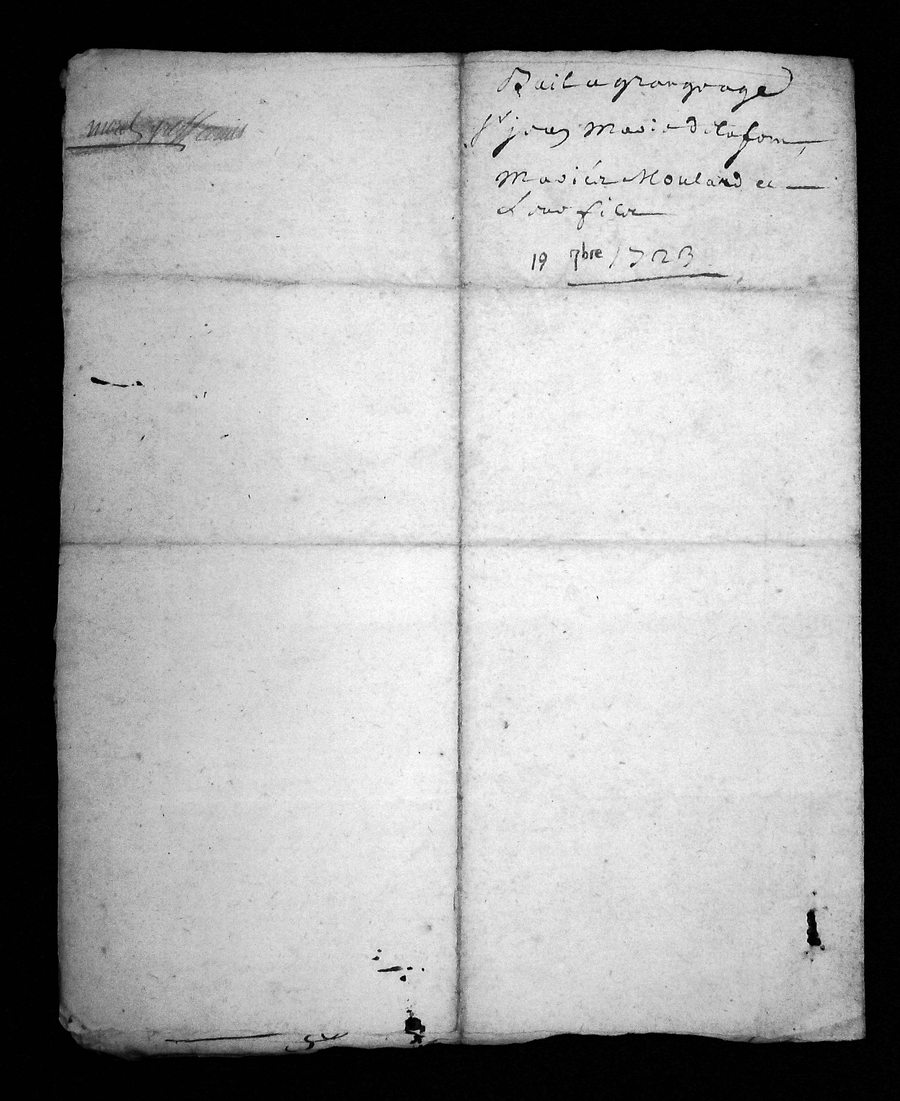 Bail a grangeage
Sr jean Marie delafom,
Mariéz Moulard et
Leur filz
19 7bre 1723